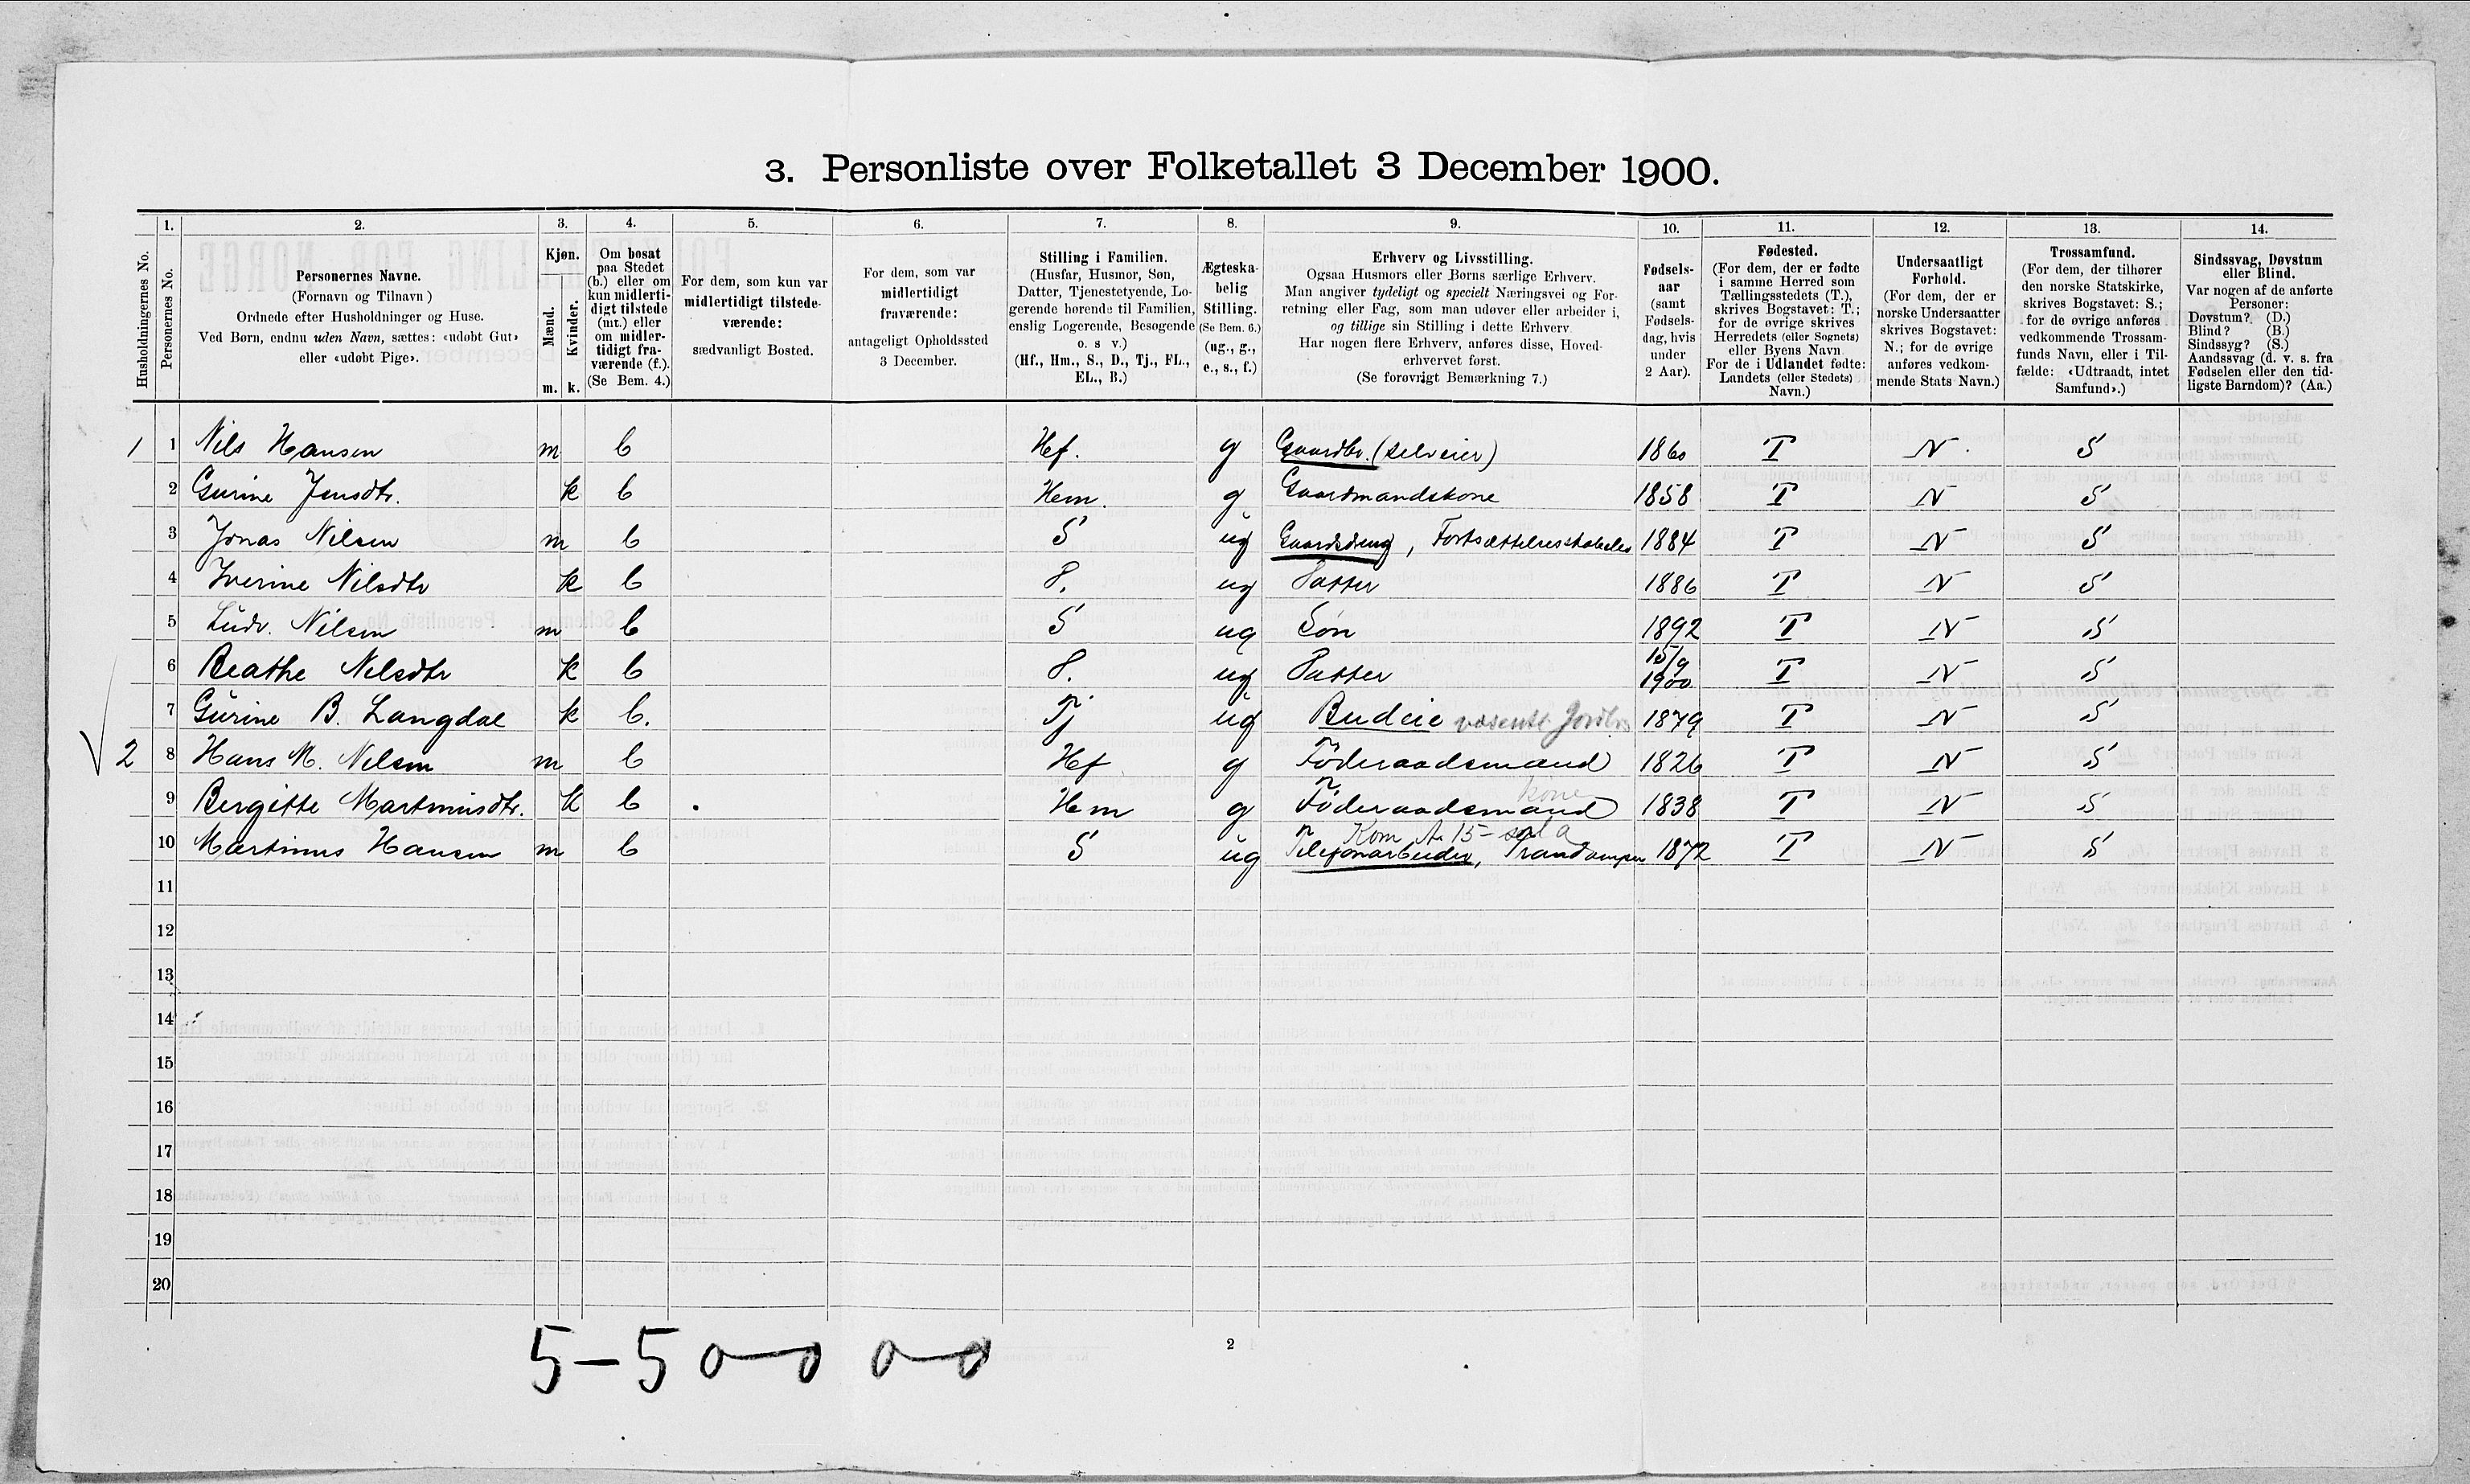 3. Personliste over Folketallet 3 December 1900.
Husholdningernes No.
1.
Personernes No.
2.
Personernes Navne.
(Fornavn og Tilnavn )
Ordnede efter Husholdninger og Huse.
Ved Børn, endnu uden Navn, sættes: «udøbt Gut»
eller «udøbt Pige».
3.
Kjøn.
Mænd.
Kvinder.
m. k.
4.
Om bosat
paa Stedet
(b.) eller om
kun midlerti-
digt tilstede
(mt.) eller
om midler-
tidigt fra-
værende (f.).
(Se Bem. 4.)
5.
For dem, som kun var
midlertidigt tilstede-
værende:
sædvanligt Bosted.
6.
For dem, som var
midlertidigt
fraværende:
antageligt Opholdssted
3 December.
7.
Stilling i Familien.
(Husfar, Husmor, Søn,
Datter, Tjenestetyende, Lo-
gerende hørende til Familien,
enslig Logerende, Besøgende
o. s v.)
(Hf., Hm., S., D., Tj., FL.,
EL., B.)
8.
Ægteska-
belig
Stilling.
(Se Bem. 6.)
(ug., g.,
e., s., f.)
9.
Erhverv og Livsstilling.
Ogsaa Husmors eller Børns særlige Erhverv.
Man angiver tydeligt og specielt Næringsvei og For-
retning eller Fag, som man udøver eller arbeider i,
og tillige sin Stilling i dette Erhverv
Har nogen flere Erhverv, anføres disse, Hoved-
erhvervet først.
(Se forøvrigt Bemærkning 7.)
10.
Fødsels-
aar
(samt
Fødsels-
dag, hvis
under
2 Aar).
11.
Fødested.
(For dem, der er fødte
i samme Herred som
Tællingsstedets (T.),
skrives Bogstavet: T.;
for de øvrige skrives
Herredets (eller Sognets)
eller Byens Navn
For de i Udlandet fødte:
Landets (eller Stedets)
Navn.)
12.
Undersaatligt
Forhold.
(For dem, der er
norske Undersaatter
skrives Bogstavet:
N.; for de øvrige
anføres vedkom-
mende Stats Navn.)
13.
Trossamfund.
(For dem, der tilhører
den norske Statskirke,
skrives Bogstavet: S.;
for de øvrige anføres
vedkommende Trossam-
funds Navn, eller i Til-
fælde: «Udtraadt, intet
Samfund».)
14.
Sindssvag, Døvstum
eller Blind.
Var nogen af de anførte
Personer:
Døvstum? (D.)
Blind? (B.)
Sindssyg? (S.)
Aandssvag (d. v. s. fra
Fødselen eller den tid-
ligste Barndom)? (Aa.)
1 1 Nils Hansen m b Hf. g Gaardbr. (selveier) 1860 T N. S
2 Gurine Jensdtr. k b Hem. g Gaardmandskone 1858 T N S
3 Jonas Nilsen m b S ug Gaardsdreng, 1884 T N S
4 Iverine Nilsdtr k b D. ug Datter 1886 T N S
5 Ludv. Nilsen m b S ug Søn 1892 T N S
6 Beathe Nilsdtr k b D. ug Datter 15/9 1900 T N S
7 Gurine B. Langdal k b. Tj ug Budeie væsentl. Jordbr. 1879 T N S
2 8 Hans M. Nilsen m b Hf g Føderaadsmand 1826 T N S
9 Bergitte Martinusdtr. k b Hm g Føderaadsmand kone 1838 T N S
10 Martinus Hansen m b S ug Telefonarbeider, Trandamper 1872 T N S
11
12
13
14
15
16
17
18
19
20
5-5 0-0 0-0
2